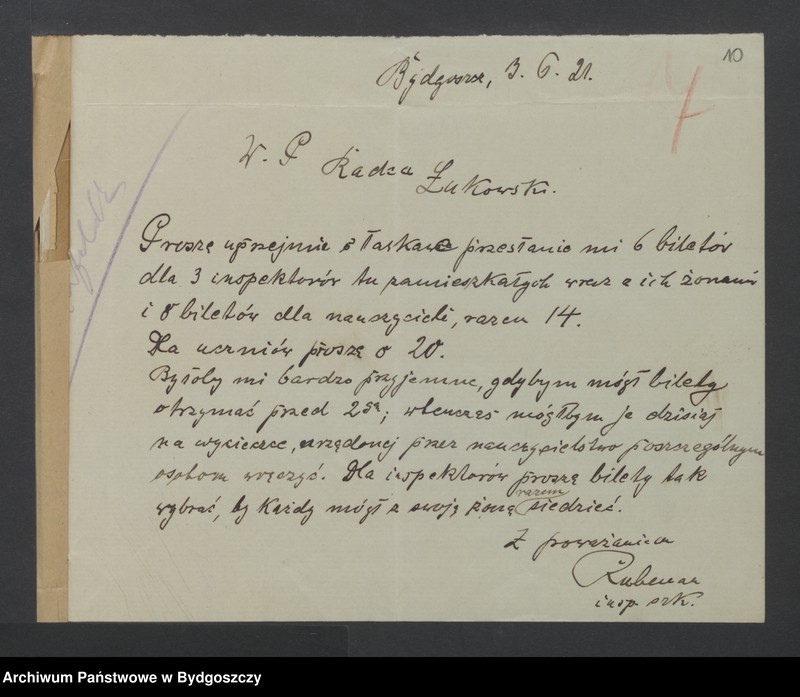 10
Bydgoszcz, 3. 6. 21.
7
W. P Radca
Żukowski.
Proszę uprzejmie o łaskawe przesłanie mi 6 biletów
dla 3 inspektorów tu zamieszkałych wraz z ich żonami
i 8 biletów dla nauczycieli, razem 14.
Dla uczniów proszę o 20.
Byłoby mi bardzo przyjemne, gdybym mógł bilety
otrzymać przed 2gą; wtenczas mógłbym je dzisiaj
na wycieczce, urządonej przez nauczycielstwo poszczególnym
osobom wręczyć. Dla inspektorów proszę bilety tak
wybrać, by każdy mógł z swoją żoną razem siedzieć.
Z poważaniem
insp. szk.
Archiwum Państwowe w Bydgoszczy